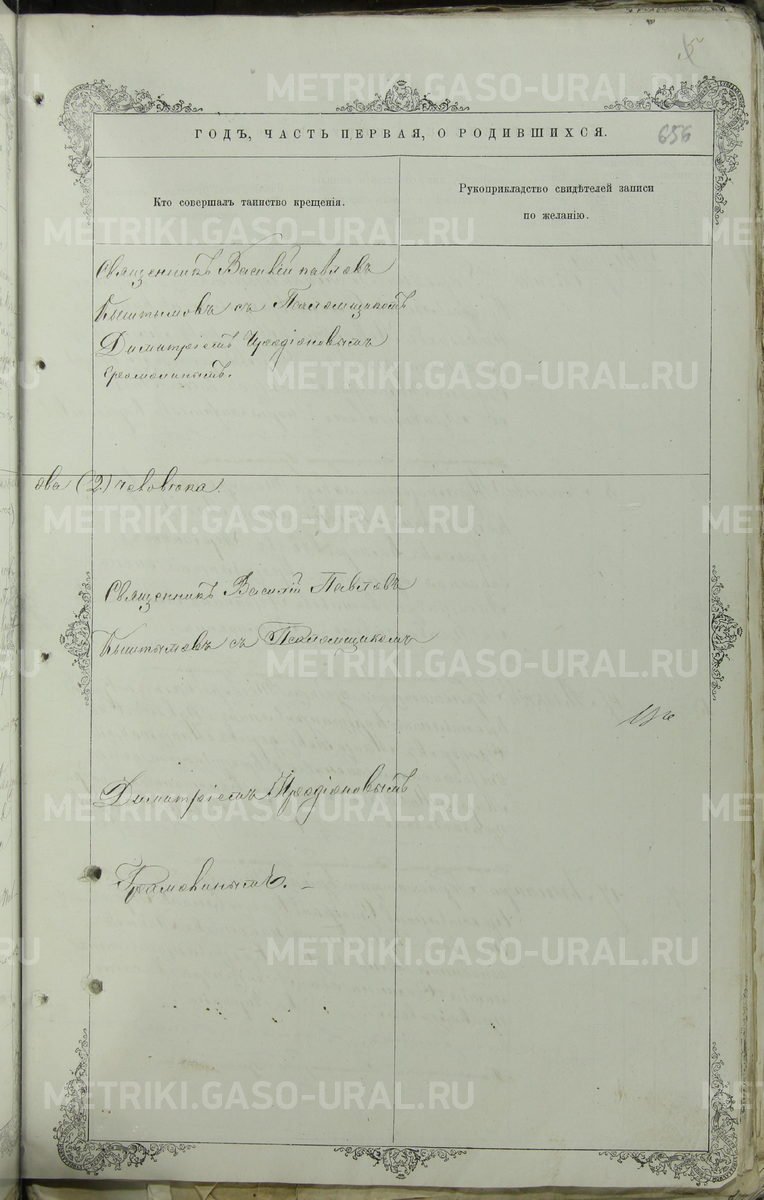 ГОДЪ, ЧАСТЬ ПЕРВАЯ, О РОДИВШИХСЯ.
656
Кто совершалъ таинство крещенія.
Рукоприкладство свидѣтелей записи
по желанію.
Священникъ Василій Павловъ
Кыштымовъ съ Псаломщикомъ
Димитріемъ Иродіоновымъ
два (2) человѣка.
Священникъ Василій Павловъ
Кыштымовъ съ Псаломщикомъ
Димитріемъ Иродіоновымъ
METRIKI.GASO-URAL.RU